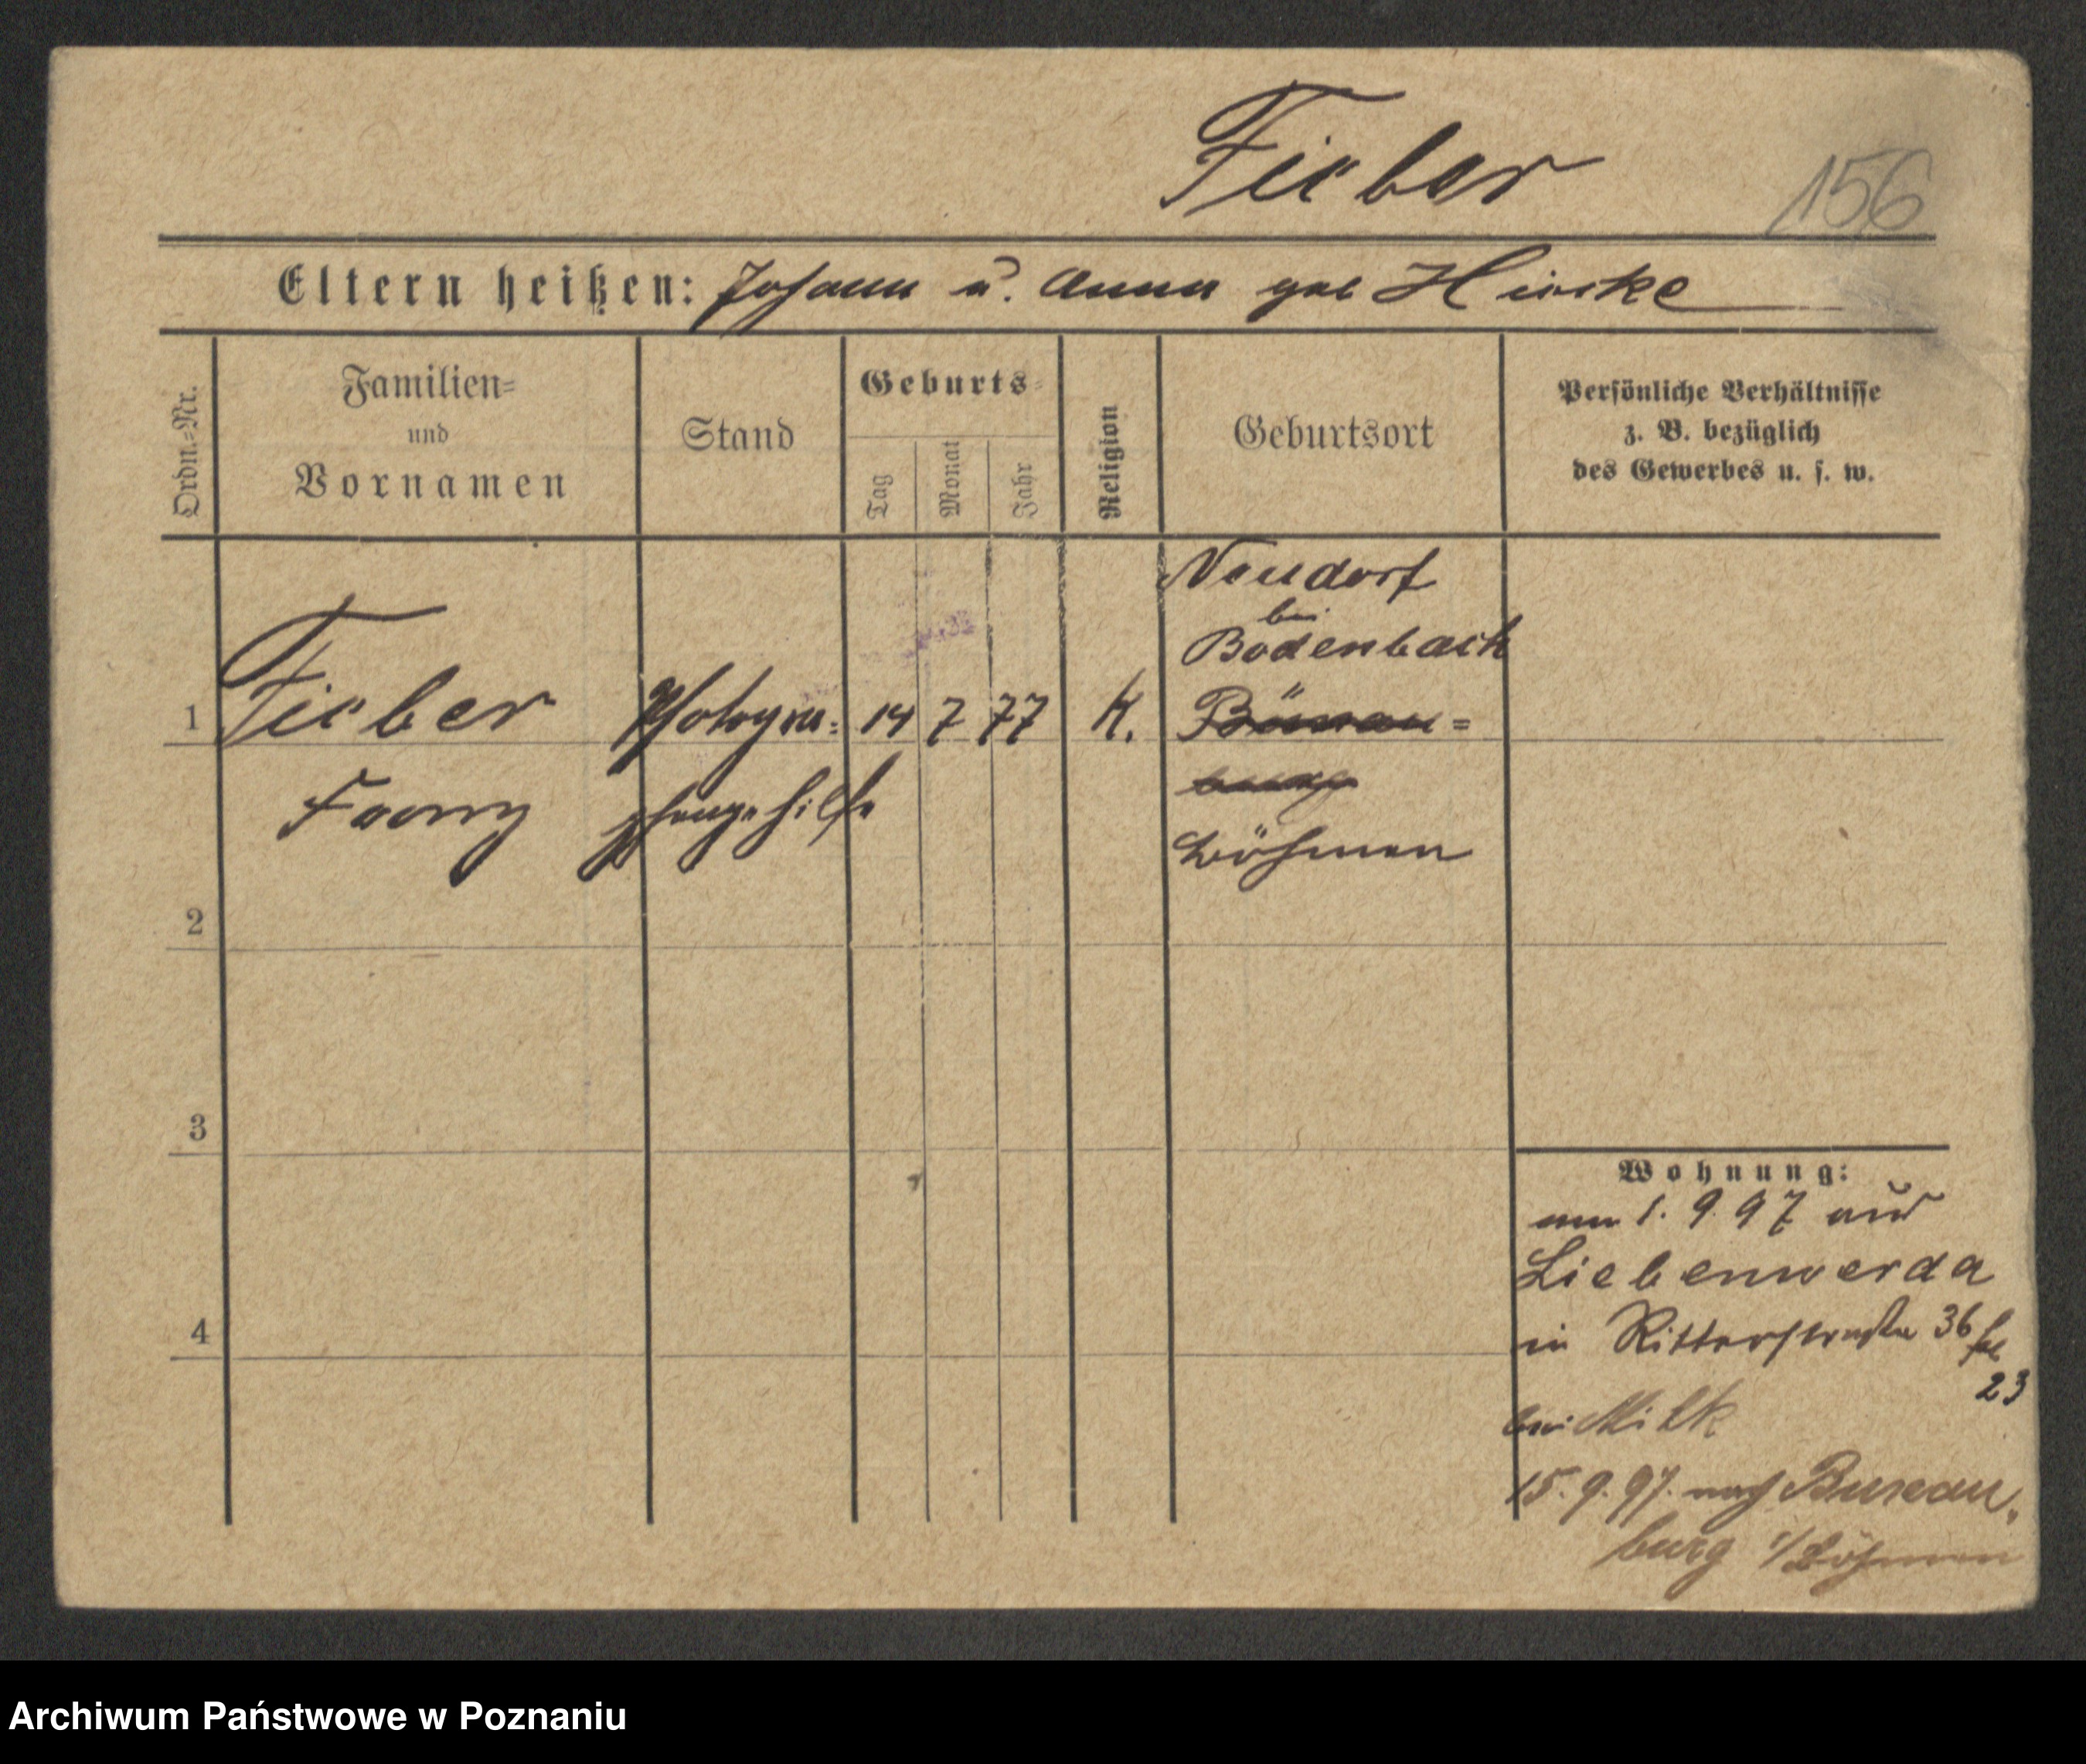 Fieber
156
Eltern heißen: Johann u. Anna geb Hircke
Ordn.=Nr.
Familien=
und
Vornamen
Stand
Geburts=
Tag
Monat
Jahr
Religion
Geburtsort
Persönliche Verhältnisse
z. B. bezüglich
des Gewerbes u. s. w.
Neudorf
bei
Bodenbach
1 Fieber Photogra= 14 7 77 K. Bünau=
burg
Franz phengehilfe
Böhmen
2
3
4
Wohnung:
am 1. 9. 97 aus
Liebenwerda
in Ritterstraße 36
23
bei Milk
15. 9. 97. nach Buneau,
burg i/Böhmen
Archiwum Państwowe w Poznaniu